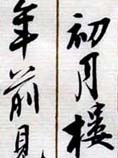 初月樓
年前見